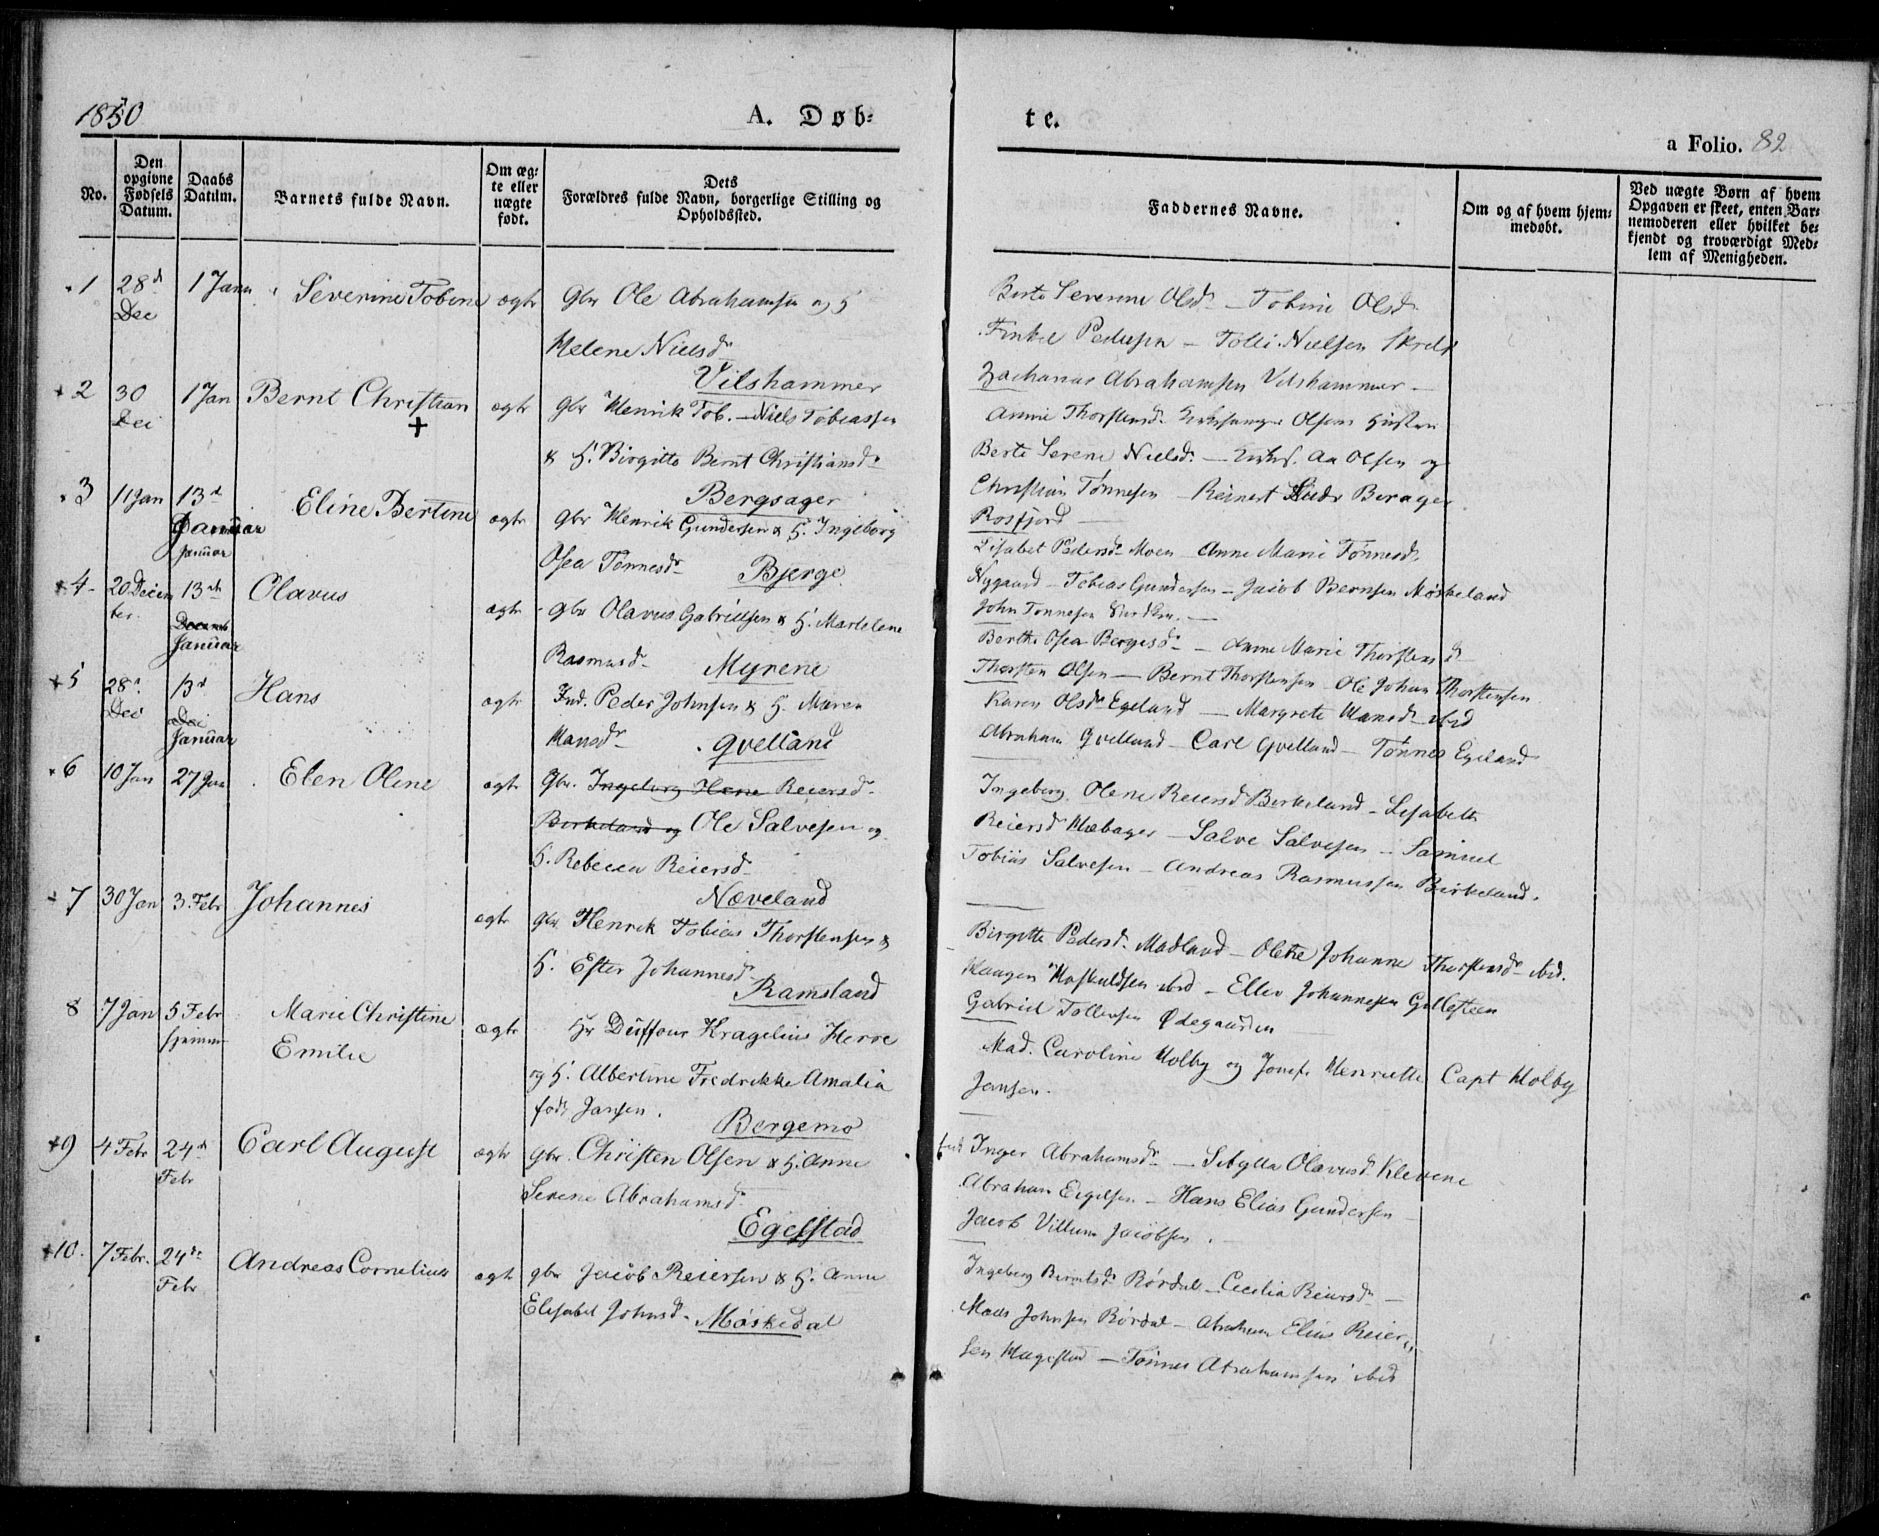 1850
A. Døb-
te.
a Folio. 82
No.
Den opgivne Fødsels Datum.
Daabs Datum.
Barnets fulde Navn.
Om ægte eller uægte født.
Dets Forældres fulde Navn, borgerlige Stilling og Opholdssted.
Faddernes Navne.
Om og af hvem hjemmedøbt.
Ved uægte Børn af hvem Opgaven er skeet, enten Barnemoderen eller hvilket bekjendt og troværdigt Medlem af Menigheden.
1 28d Dec 1 Janu Severine Tobine ægte Gbr Ole Abrahamsen og H
Helene Nielsd.
Vilshammer
Berte Severine Olsd. – Tobine Olsd.
Pedersen – Tolli Nielsen
Zacharias Abrahamsen Vilshammer –
2 30 Dec 1 Jan Bernt Christian ægte Gbr Henrik Tob. – Niels Tobiassen
& H. Birgitte Bernt Christiansd.
Bergsager
Annie Thorstensd. Olsens Hustru
Berte Serene Nielsd. – Aa Olsen og
Christian Tønnesen – Reinert Berager
Rosfjord –
3 11 Jan 13d Januar Januar Eline Bertine ægte Gbr Henrik Gundersen & H. Ingeborg
Osea Tønnesd. Bjerge
Lisabet Pedersd. Moen Anne Marie Tønnesd.
Nygaard – Tobias Gundersen – Jacob Berntsen Møskeland
John Tønnesen
4 20 Decem ber 13de Januar Olavus ægte gbr Olavus Gabrielsen & H. Martelene
Rasmusd. Myrene
Berthe Osea Bergesd. – Anne Marie Thorstensd.
Thorsten Olsen – Bernt Thorstensen – Ole Johan Thorstensen
5 28d Dec 13d Dec Januar Hans ægte Ind. Peder Johnsen & H. Maren
Hansd. Qvelland
Karen Olsd. Egeland – Margrete Hansd. ibid
Abraham Qvelland – Carl Qvelland – Tønnes Egeland
6 10 Jan 27 Jan Elen Olene ægte Gbr. Ingeborg Reiersd.
Birkeland og Ole Salvesen og
H. Rebecca Reiersd.
Næveland
Ingeborg Olene Reiersd. Birkeland – Lisabeth
Reiersd. Hæbager – Salve Salvesen – Samuel
Tobias Salvesen – Andreas Rasmussen Birkeland.
7 30 Jan 3. Febr Johannes ægte Gbr Henrik Tobias Thorstensen &
H. Ester Johannesd.
Ramsland
Birgitte Pedersd. Madland – Olene Johanne Thorstensd. ibid.
Haagen Hoskuldsen ibid – Ellev Johannesen Gullesteen
Gabriel Tollevsen Ødegaarden
8 7 Jan 5 Febr hjemme Marie Christine
Emilie
ægte Hr Duffour Kragelius Herre
og H. Albertine Fredrikke Amalia
født Jansen.
Bergemo
Mad. Caroline Holby og Jomf. Henriette Capt Holby
Jansen.
9 4 Febr 24de Febr Carl August ægte gbr. Christen Olsen & H. Anne
Serene Abrahamsd.
Egelstad
Inger Abrahamsd. – Sibylla Olavusd. Klevene
Abraham Eigelsen – Hans Elias Gundersen –
Jacob Villum Jacobsen.
10. 7 Febr. 24de Febr Andreas Cornelius ægte gbr Jacob Reiersen & H. Anne
Elisabet Johnsd. Møskedal
Ingeborg Berntsd. Rørdal – Cecilia Reiersd. –
Mads Johnsen Rørdal – Abraham Elias Reier-
sen Hægestad – Tønnes Abrahamsen ibid